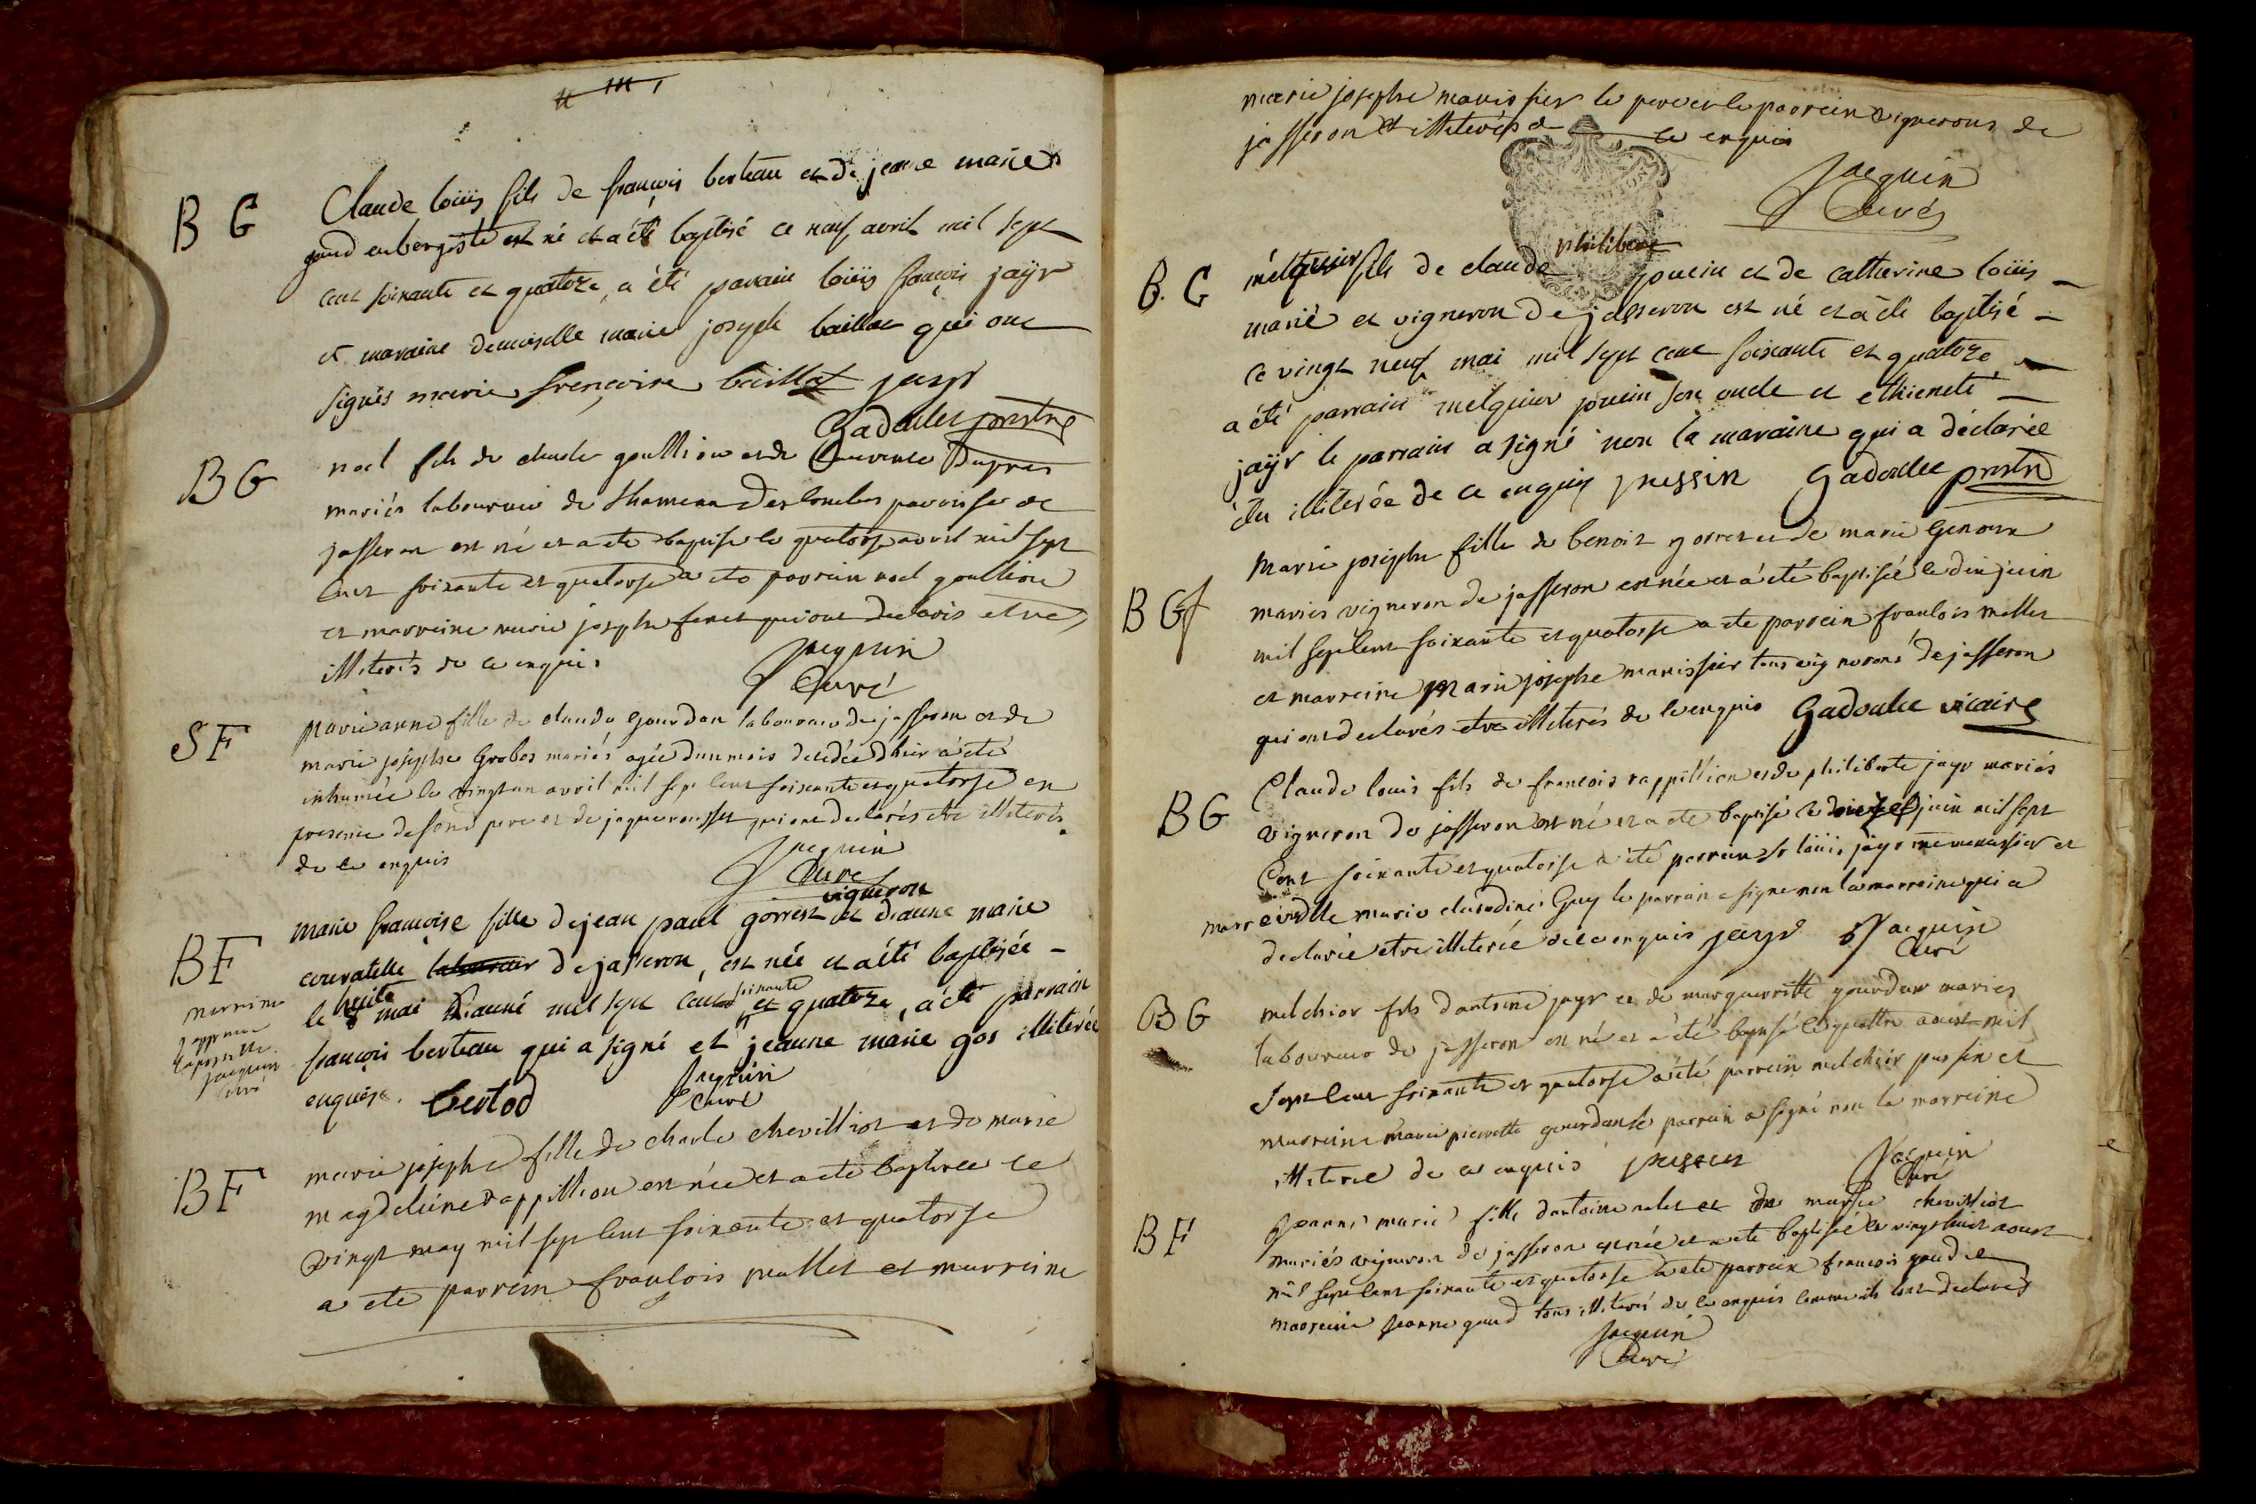 B G
Claude loüis fils de françois berteau et de jeanne marie
gaud aubergiste est né et a été baptisé ce neuf avril mil sept
cent soixante et quatorze, a été parain loüis françois jaÿr
et maraine demoiselle marie joseph baillat qui ont
signés marie françoise baillat jayr
Gadoulet prestre
B G
noel fils de claude goullion et de Laurence Dupres
mariés laboureur de paroisse de
jasseron est né et a ete baptisé le quatorse avril mil sept
cent soixante et quatorse a ete parrein noel goullion
et marreine marie josephe feret qui ont declarés etre
illiterés de ce enquis
Jacquin
Curé
S F
Marie anne fille de claude Gourdan laboureur de jasseron et de
marie josephe Grobos mariés agée d'un mois decedée d'hier a eté
inhumée le vingt un avril mil sept cent soixante et quatorse en
presence de son pere et de qui ont declarés etre illiterés
de ce enquis
Jacquin
Curé
vigneron
B F
marie françoise fille de jean paul gorrest et de jeanne marie
couvatelle laboureur de jasseron, est née et a été baptisée
le huite mai l'année mil sept cent soixante et quatorze, a été parrain
françois berteau qui a signé et jeanne marie gos illiterée
enquise. bertod Jacquin
Curé
marrine
approuvé
Jacquin
curé
B F
marie josephe fille de charle chevilliot et de marie
magdeleine rappillion est née et a ete baptisée le
vingt may mil sept cent soixante et quatorse
a ete parrein francois mallet et marreine
marie josephe marissier le pere et le parrein vignerons de
jasseron et illiterés de ce enquis
Jacquin
Curé
B. G
melquior fils de claude philibert poucin et de catherine loüis
marié et vigneron de jasseron est né et a été baptisé
ce vingt neuf mai mil sept cent soixante et quatorze
a été parrain melquior poucin son oncle et ethienete
jaÿr le parrain a signé non la maraine qui a déclarée
être illiterée de ce enquis pussin Gadoulet prestre
B G f
Marie josephe fille de benoit gorret et de marie Genoux
mariés vigneron de jasseron est née et a été baptisée le dix juin
mil sept cent soixante et quatorse a ete parrein francois mallet
et marreine Marie josephe marissier tous vignerons de jasseron
qui ont declarés etre illiterés de ce enquis Gadoulet vicaire
B G
Claude louis fils de francois rappillion et de philiberte jayr mariés
vigneron de jasseron est né et a eté baptisé le juin mil sept
cent soixante et quatorse a été parrein sr loüis jayr et
marreine dlle marie claudine Guy le parrain a signé non la marreine qui a
declarée etre illiterée de ce enquis jayr Jacquin
Curé
B G
melchior fils d'antoine jayr et de margueritte gourdan mariés
laboureur de jasseron est né et a été baptisé le quattre aoust mil
sept cent soixante et quatorse a été parrein melchior pussin et
marreine marie pierrette gourdan le parrain a signé non la marreine
illiterée de ce enquis pussin Jacquin
Curé
B F
Jeanne marie fille d'antoine nalet et de marie chevilliot
mariés vigneron de jasseron est née et a ete baptisée le vingt huit aoust
mil sept cent soixante et quatorse a été parrein françois gaud et
marreine jeanne gaud tous illiterés de ce enquis comme ils l'ont declarés
Jacquin
Curé